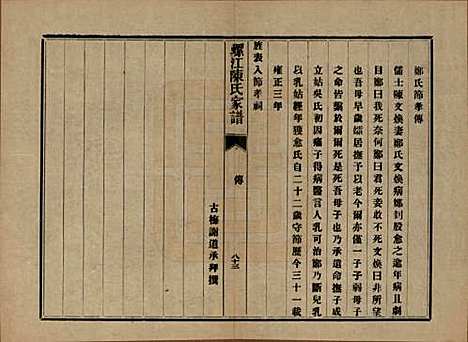 鄭氏節孝傳
儒士陳文煥妻鄭氏文煥病鄭刲股愈之逾年病且劇
目鄭曰我死奈何鄭曰君死妾敢不死文煥曰非所望
也吾母早歲孀居撫予以老今爾亦僅一子子弱母子
之命皆縣於爾爾死是死吾母子也乃承遺命撫子成
立姑吳氏初因痛子得病醫言人乳可治鄭乃斷兒乳
以乳姑經年獲愈氏自二十二歲守節歷今三十一載
雍正三年
旌表入節孝祠
螺江陳氏家譜
傳
八十三
古梅謝道承拜撰